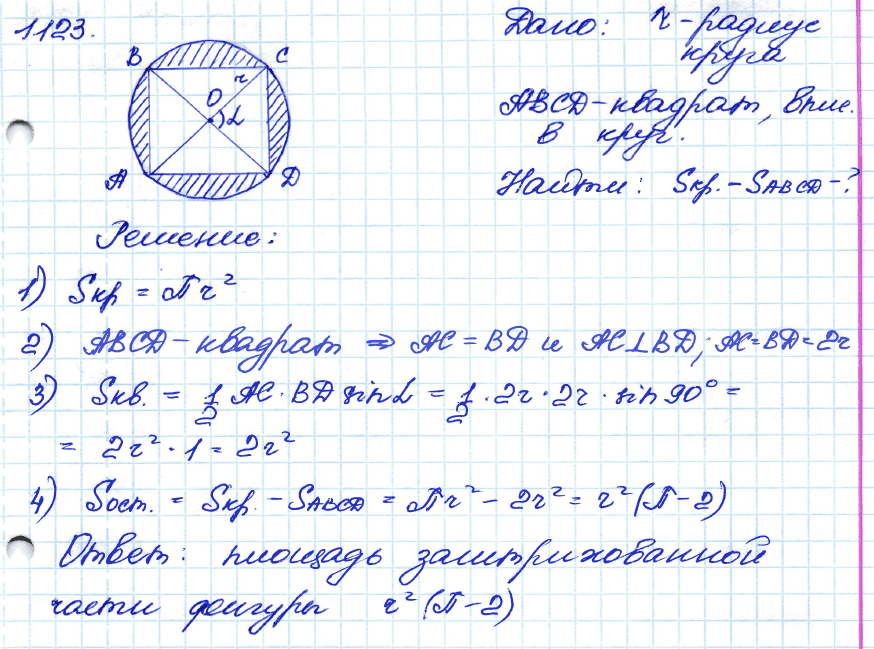 1123.
Дано: r - радиус
круга
ABCD - квадрат, впис.
в круг.
Найти: Sкр. - SABCD - ?
B
C
r
O
α
A
D
Решение:
1) Sкр = πr²
2) ABCD - квадрат ⇒ AC = BD и AC⊥BD; AC=BD=2r
3) Sкв. = 1/2 AC · BD sin α = 1/2 · 2r · 2r · sin 90° =
= 2r² · 1 = 2r²
4) Sост. = Sкр. - SABCD = πr² - 2r² = r²(π-2)
Ответ: площадь заштрихованной
части фигуры r²(π-2)